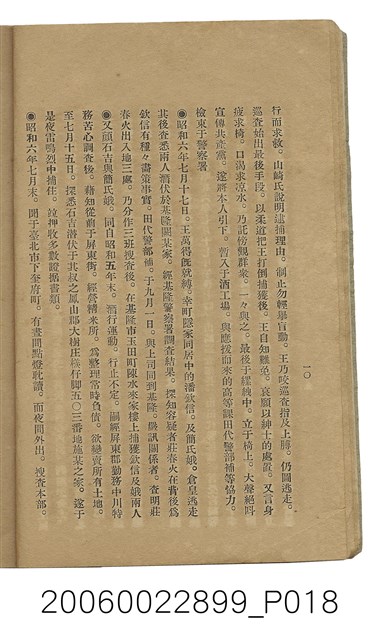 一〇
行而求救。山崎氏說明逮捕理由。制止勿輕擧盲動。王乃咬巡查指及上膊。仍圖逃走。
巡查始出最後手段。以柔道把王打倒捕獲後。王自知難免。哀願以紳士的處置。又言身
疲求椅。口渴求凉水。乃託傍觀群衆。一々與之。最後于縲絏中。立于椅上。大聲絕叫
宣傳共產黨。遂將本人引下。暫入于酒工場。與應援而來的高等課田代警部補等協力。
檢束于警察署
◉昭和六年七月十七日。王萬得旣就縛。幸町隱家同居中的潘欽信。及簡氏娥。倉皇逃走
其後查悉兩人潛伏於基隆關某家。經基隆警察署調查結果。探知容疑者莊春火在背後爲
欽信有種々畫策事實。田代警部補。于九月一日。與上司同到基隆。嚴訊關係者。查明莊
春火出入地三處。乃分作三班搜查後。在基隆市玉田町陳水來家樓上捕獲欽信及娥兩人
◉又顔石吉與簡氏娥。同自昭和五年末。潛行運動。行止不定。嗣經屏東郡勤務中川特
務苦心調查後。藉知從前于屏東街。經營精米所。爲整理當時負債。欲變賣所有土地。
至七月十五日。探悉石吉潛伏于其叔之鳳山郡大樹庄檨仔脚五〇三番地施某之家。遂于
是夜雷鳴烈中捕住。並押收多數證據書類。
◉昭和六年七月末。聞于臺北市下奎府町。有晝間點燈耽讀。而夜間外出。搜查本部。
20060022899_P018